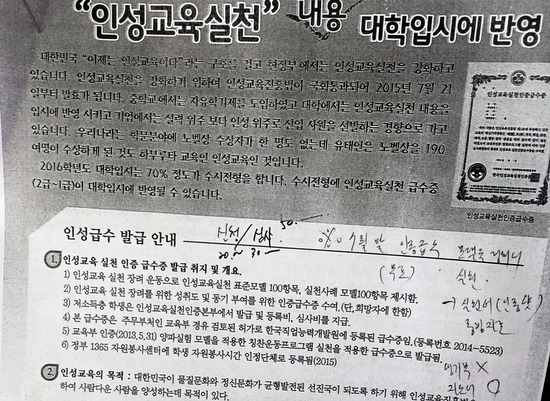 "인성교육실천" 내용 대학입시에 반영
대한민국 "이제는 인성교육이다"라는 구호를 걸고 현정부에서는 인성교육실천을 강화하고
있습니다. 인성교육실천을 강화하기 위하여 인성교육진흥법이 국회통과되어 2015년 7월 21
일부터 발효가 됩니다. 중학교에서는 자유학기제를 도입하였고 대학에서는 인성교육실천 내용을
입시에 반영 시키고 기업에서는 실력 위주 보다 인성 위주로 신입 사원을 선발하는 경향으로 가고
있습니다. 우리나라는 학문분야에 노벨상 수상자가 한 명도 없는데 유태인은 노벨상을 190
여명이 수상하게 된 것도 하부루타 교육인 인성교육인 것입니다.
2016학년도 대학입시는 70% 정도가 수시전형을 합니다. 수시전형에 인성교육실천 급수증
(2급~1급)이 대학입시에 반영될 수 있습니다.
인성교육실천인증급수증
인성급수 발급 안내
신청/심사
50.
20. 30.
인증급수
(무료)
실천
1. 인성교육 실천 인증 급수증 발급 취지 및 개요.
1) 인성교육 실천 장려 운동으로 인성교육실천 표준모델 100항목, 실천사례 모델100항목 제시함.
2) 인성교육 실천 장려를 위한 성취도 및 동기 부여를 위한 인증급수증 수여.(단,희망자에 한함)
3) 저소득층 학생은 인성교육실천인증본부에서 발급 및 등록비, 심사비를 지급.
4) 본 급수증은 주무부처인 교육부 경유 검토된 허가로 한국직업능력개발원에 등록된 급수증임.(등록번호 2014-5523)
5) 교육부 인증(2013,5,31) 양파실험 모델을 적용한 창찬운동프로그램 실천을 적용한 급수증으로 발급됨.
6) 정부 1365 자원봉사센터에 학생 자원봉사시간 인정단체로 등록됨(2015)
2. 인성교육의 목적 : 대한민국이 물질문화와 정신문화가 균형발전된 선진국이 되도록 하기 위해 인성교육진흥법
하여 사람다운 사람을 양성하는데 목적이 있다.